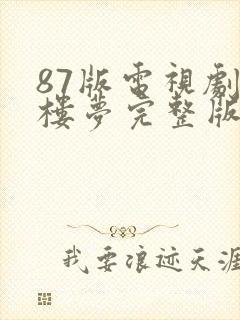 87版電視劇
樓夢完整版
我要浪迹天涯